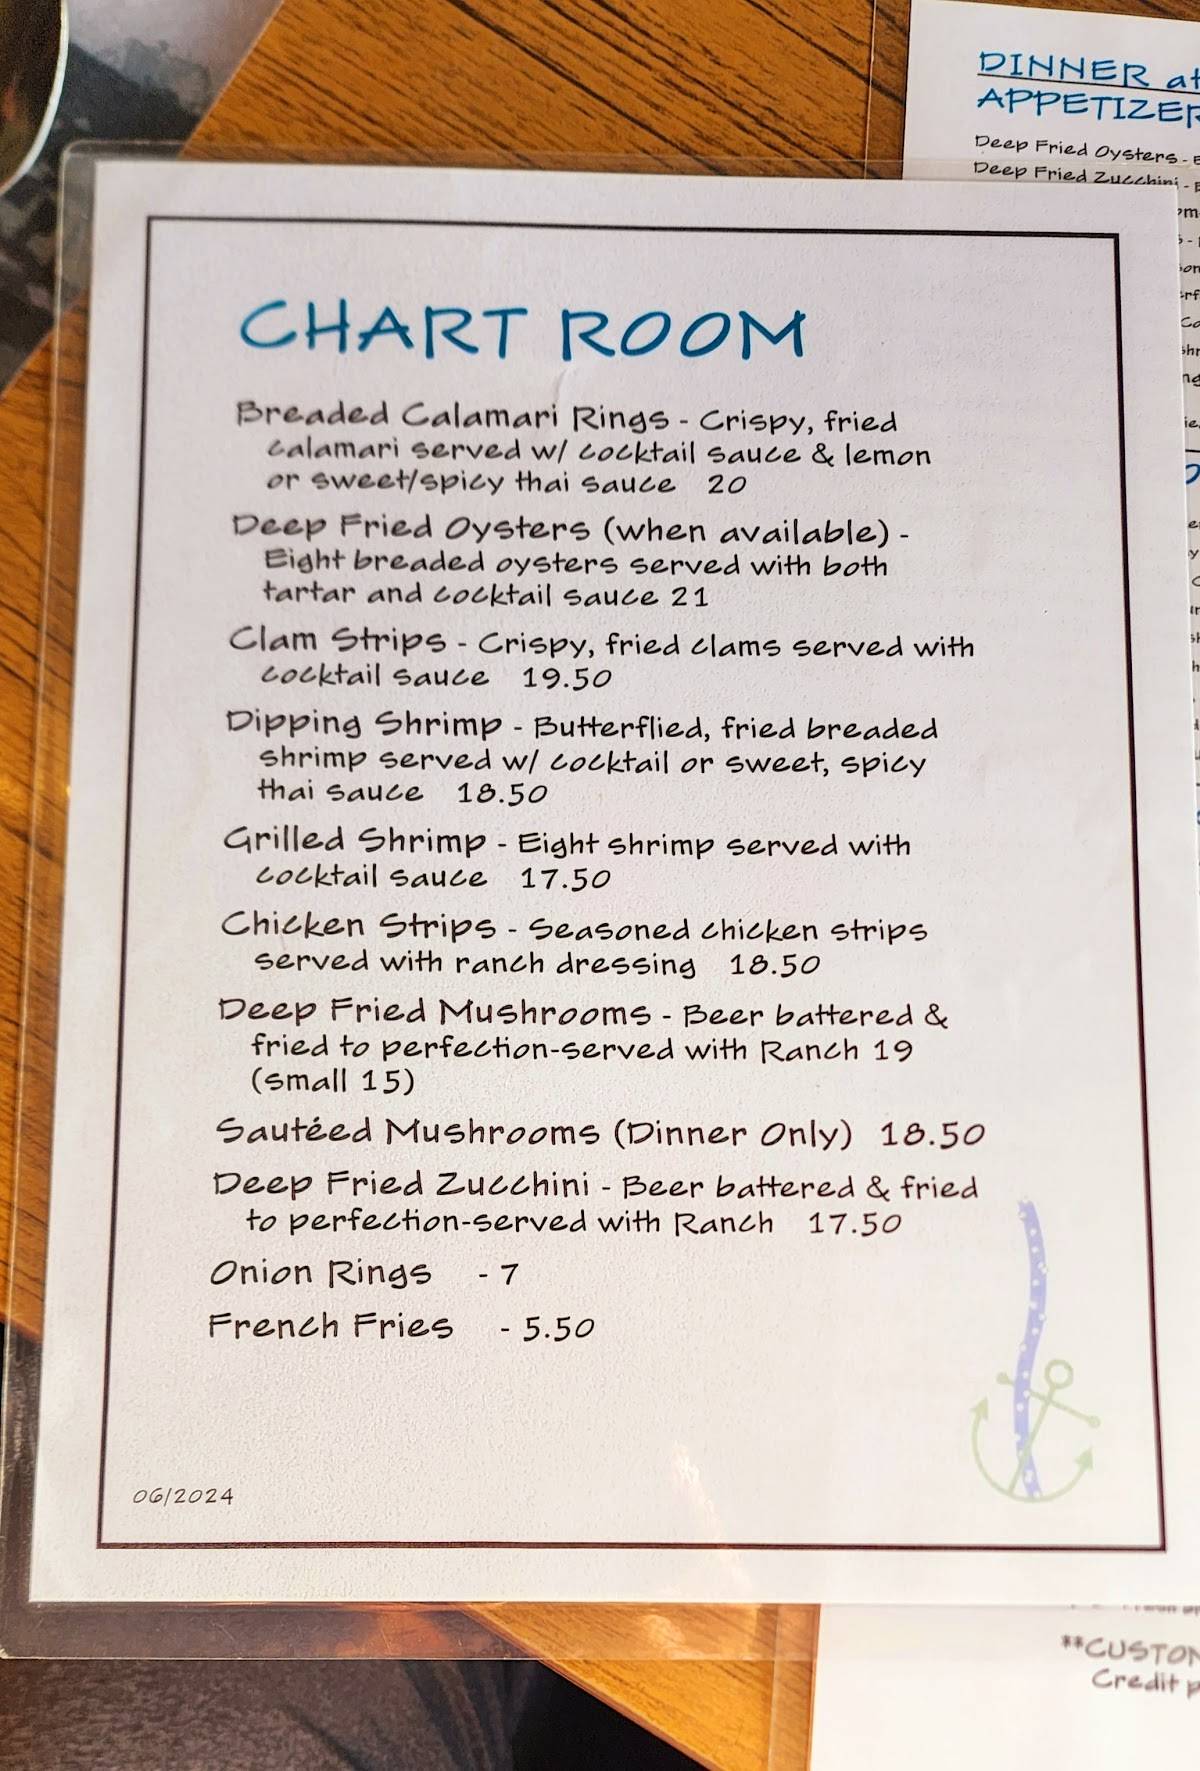 DINNER at
APPETIZER
Deep Fried Oysters -
Deep Fried Zucchini -
CHART ROOM
Breaded Calamari Rings - Crispy, fried
calamari served w/ cocktail sauce & lemon
or sweet/spicy thai sauce 20
Deep Fried Oysters (when available) -
Eight breaded oysters served with both
tartar and cocktail sauce 21
Clam Strips - Crispy, fried clams served with
cocktail sauce 19.50
Dipping Shrimp - Butterflied, fried breaded
shrimp served w/ cocktail or sweet, spicy
thai sauce 18.50
Grilled Shrimp - Eight shrimp served with
cocktail sauce 17.50
Chicken Strips - Seasoned chicken strips
served with ranch dressing 18.50
Deep Fried Mushrooms - Beer battered &
fried to perfection-served with Ranch 19
(small 15)
Sautéed Mushrooms (Dinner Only) 18.50
Deep Fried Zucchini - Beer battered & fried
to perfection-served with Ranch 17.50
Onion Rings - 7
French Fries - 5.50
06/2024
**CUSTOM
Credit p